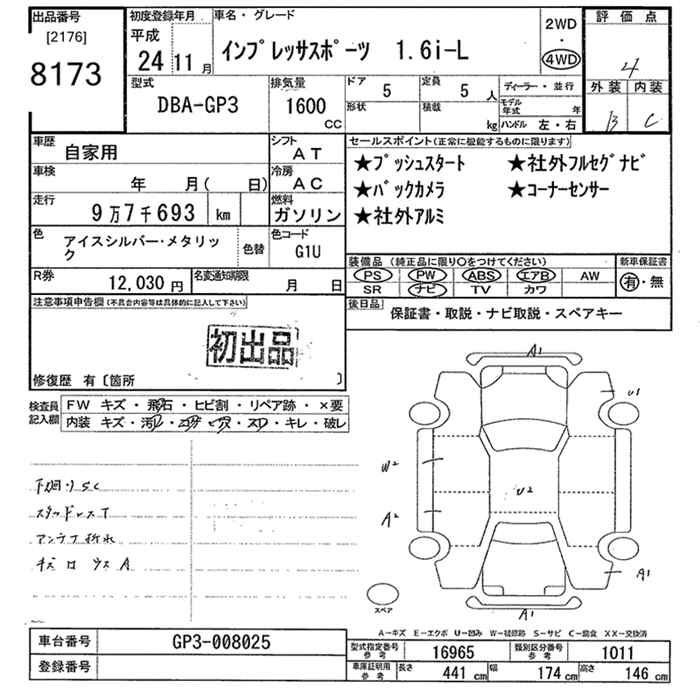 出品番号
[2176]
8173
初度登録年月
平成
24 11 月
車名・グレード
インプレッサスポーツ 1.6i-L
2WD
・
4WD
評価点
4
外装 内装
B C
型式
DBA-GP3
排気量
1600
CC
ドア
5
定員
5 人
形状
積載
kg
ディーラー・並行
モデル年式 年
ハンドル 左・右
車歴
自家用
シフト
AT
車検
年 月( 日)
冷房
AC
走行
9万7千693 km
燃料
ガソリン
色
アイスシルバー・メタリック
色替
色コード
G1U
R券
12,030 円
名変通知期限
月 日
セールスポイント(正常に機能するものに限ります)
★プッシュスタート ★社外フルセグナビ
★バックカメラ ★コーナーセンサー
★社外アルミ
装備品 (純正品に限り○をつけてください)
PS PW ABS エアB AW
SR ナビ TV カワ
新車保証書
有・無
後日品
保証書・取説・ナビ取説・スペアキー
注意事項申告欄(不具合内容等は具体的に記入して下さい)
初出品
修復歴 有〔箇所 〕
検査員記入欄
FW キズ・飛石・ヒビ割・リペア跡・×要
内装 キズ・汚レ・コゲ・穴・スレ・キレ・破レ
下回りSC
スタッドレスT
アンテナ折れ
A1
U1
W2
U2
A2
A1
A1
スペア
A-キズ E-エクボ U-凹み W-補修跡 S-サビ C-腐食 XX-交換済
車台番号
GP3-008025
登録番号
型式指定番号 参考
16965
類別区分番号 参考
1011
車庫証明用 参考
長さ 441 cm 幅 174 cm 高さ 146 cm